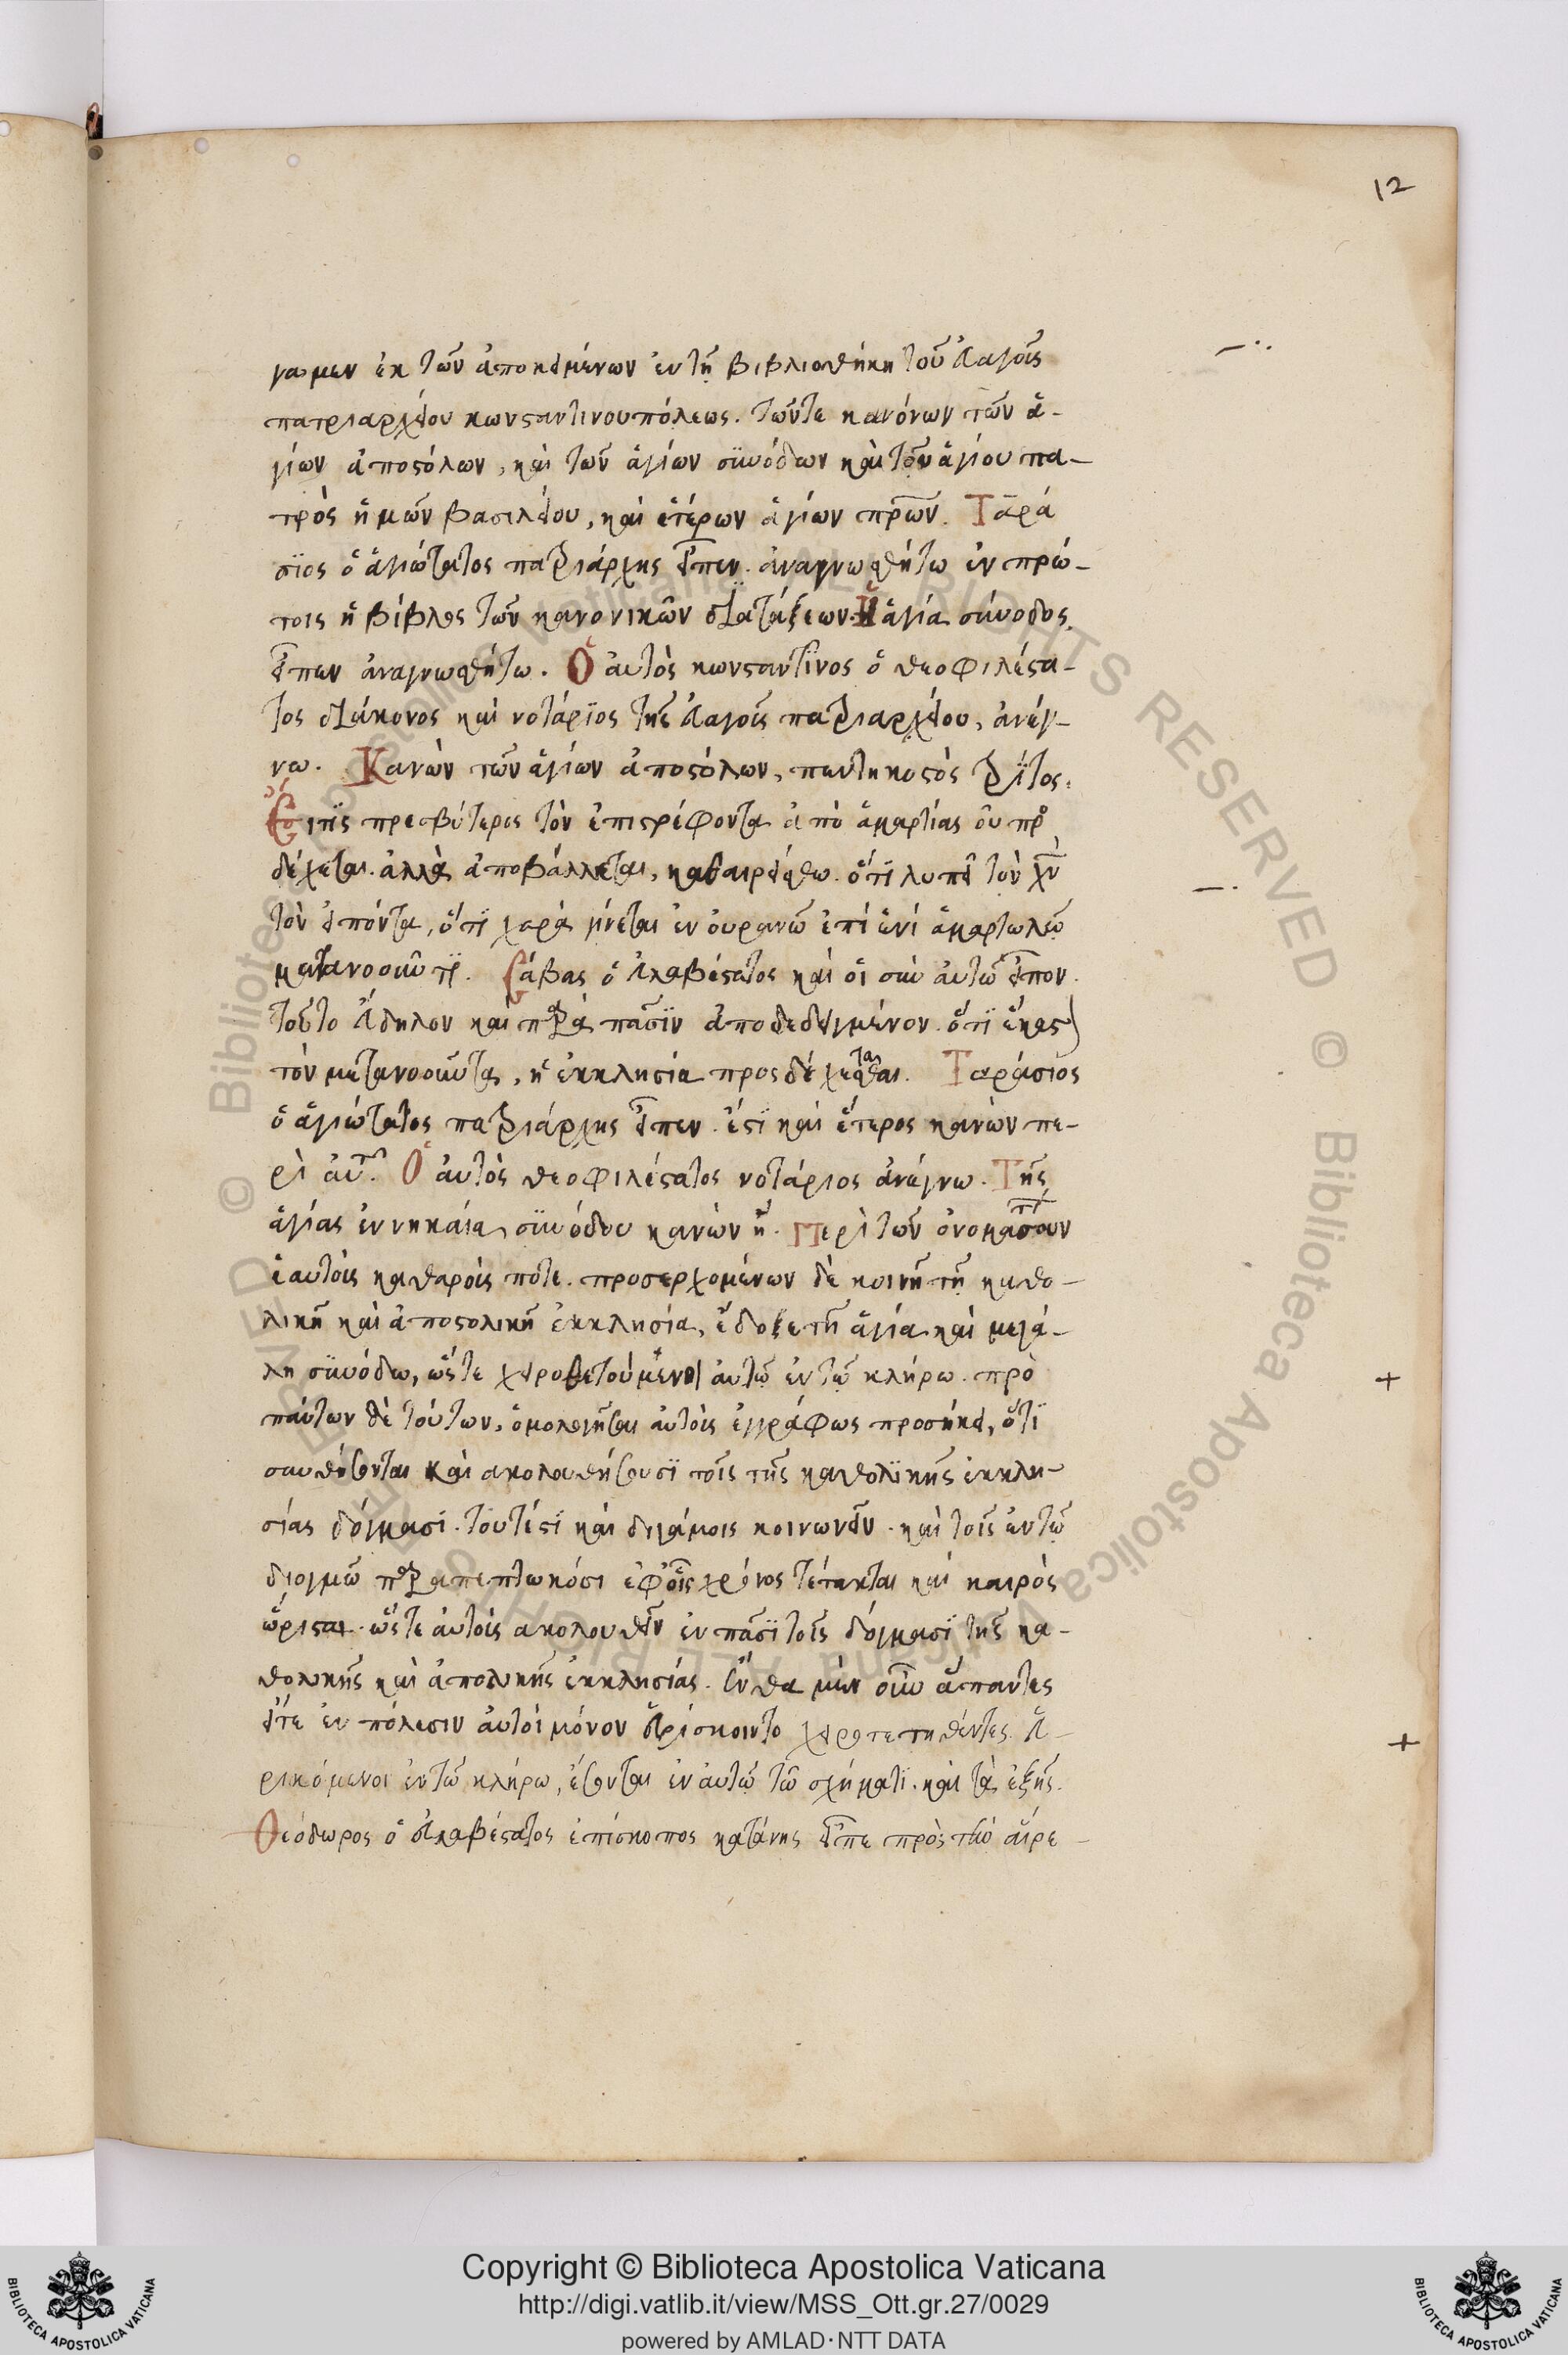 12
γωμεν ἐκ τῶν ἀποκειμένων ἐν τῇ βιβλιοθήκη τοῦ εὐαγοῦς
πατριαρχείου κωνϛαντινουπόλεως. τῶντε κανόνων τῶν ἁ-
γίων ἀποϛόλων, καὶ τῶν ἁγίων συνόδων καὶ τοῦ ἁγίου πα-
τρὸς ἡμῶν βασιλείου, καὶ ἑτέρων ἁγίων πρων. Ταρά
σϊος ὁ ἁγιώτατος πατριάρχης εἶπεν. ἀναγνωσθήτω ἐν πρώ-
τοις ἡ βίβλος τῶν κανονικῶν διατάξεων. Ἡ ἁγία σύνοδος
εἶπεν ἀναγνωσθήτω. Ὁ αὐτὸς κωνϛαντῖνος ὁ θεοφιλέϛα-
τος διάκονος καὶ νοτάρϊος τῆς εὐαγοῦς πατριαρχείου, ἀνέγ-
νω. Κανὼν τῶν ἁγίων ἀποϛόλων, πεντηκοϛὸς τρίτος.
Εἴ τις πρεσβύτερος τὸν ἐπιϛρέφοντα ἀπὸ ἁμαρτίας οὐ προ
δέχεται. ἀλλὰ ἀποβάλλεται, καθαιρείσθω. ὅτι λυπεῖ τὸν χν
τὸν εἰπόντα, ὅτϊ χαρὰ γίνεται ἐν οὐρανῶ ἐπὶ ἑνὶ ἁμαρτωλῶ
μετανοοῦντϊ. Σάβας ὁ εὐλαβέϛατος καὶ οἱ σὺν αὐτῶ εἶπον.
τοῦτο εὔδηλον καὶ παρὰ πᾶσϊν ἀποδεδειγμένον. ὅτϊ ἕκας
τὸν μετανοοῦντα, ἡ ἐκκλησία προςδέχεσθαι. Ταράσιος
ὁ ἁγιώτατος πατριάρχης εἶπεν. ἔϛϊ καὶ ἕτερος κανὼν πε-
ρὶ αὐτ. Ὁ αὐτὸς θεοφιλέϛατος νοτάριος ἀνέγνω. Τῆς
ἁγίας ἐν νηκαία συνόδου κανὼν η. Περὶ τῶν ὀνομασάντων
ἑαυτοὺς καθαροὺς πότε. προσερχομένων δὲ κοινῆ τῇ καθο-
λικῆ καὶ ἀποϛολικῆ ἐκκλησία, ἔδοξε τῆ ἁγία καὶ μεγά-
λη συνόδω, ὥϛε χειροθετούμενοι αὐτῶ ἐν τῶ κλήρω. πρὸ
πάντων δὲ τούτων, ὁμολογῆσαι αὐτοὺς ἐγγράφως προσήκει, ὅτϊ
συνθήσονται καὶ ακολουθήσουσϊ τοῖς τῆς καθολϊκῆς ἐκκλη-
σίας δόγμασϊ. τουτέϛϊ καὶ διγάμοις κοινωνεῖν. καὶ τοῖς ἐν τῶ
διογμῶ παραπεπτωκόσι ἐφ οἷς χρόνος τέτακται καὶ καιρὸς
ὥριϛαι. ὥϛε αὐτοὺς ακολουθεῖν ἐν πᾶσϊ τοῖς δόγμασϊ τῆς κα-
θολικῆς καὶ ἀπολικῆς ἐκκλησίας. ἔνθα μὲν οὖν ἅπαντες
εἴτε ἐν πόλεσιν αὐτοὶ μόνον εὑρίσκοιντο χειροτετηθέντες. εὑ-
ρισκόμενοι ἐν τῶ κλήρω, ἔσονται ἐν αὐτῶ τῶ σχήματϊ. καὶ τὰ ἑξῆς.
Θεόδωρος ὁ εὐλαβέϛατος ἐπίσκοπος κατάνης εἶπε πρὸς τὴν αἵρε-